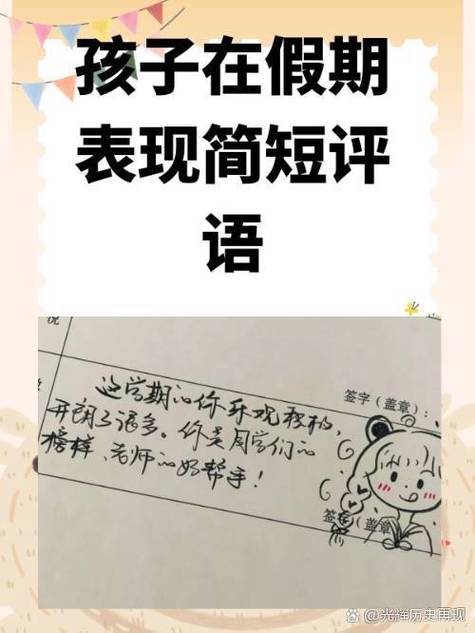 孩子在假期
表现简短评
语
况
签字（盖章）：
这学期的你乐观积极，
开朗了很多。你是同学们的
榜样、老师的好帮手！
签字（盖章
@光辉历史再现